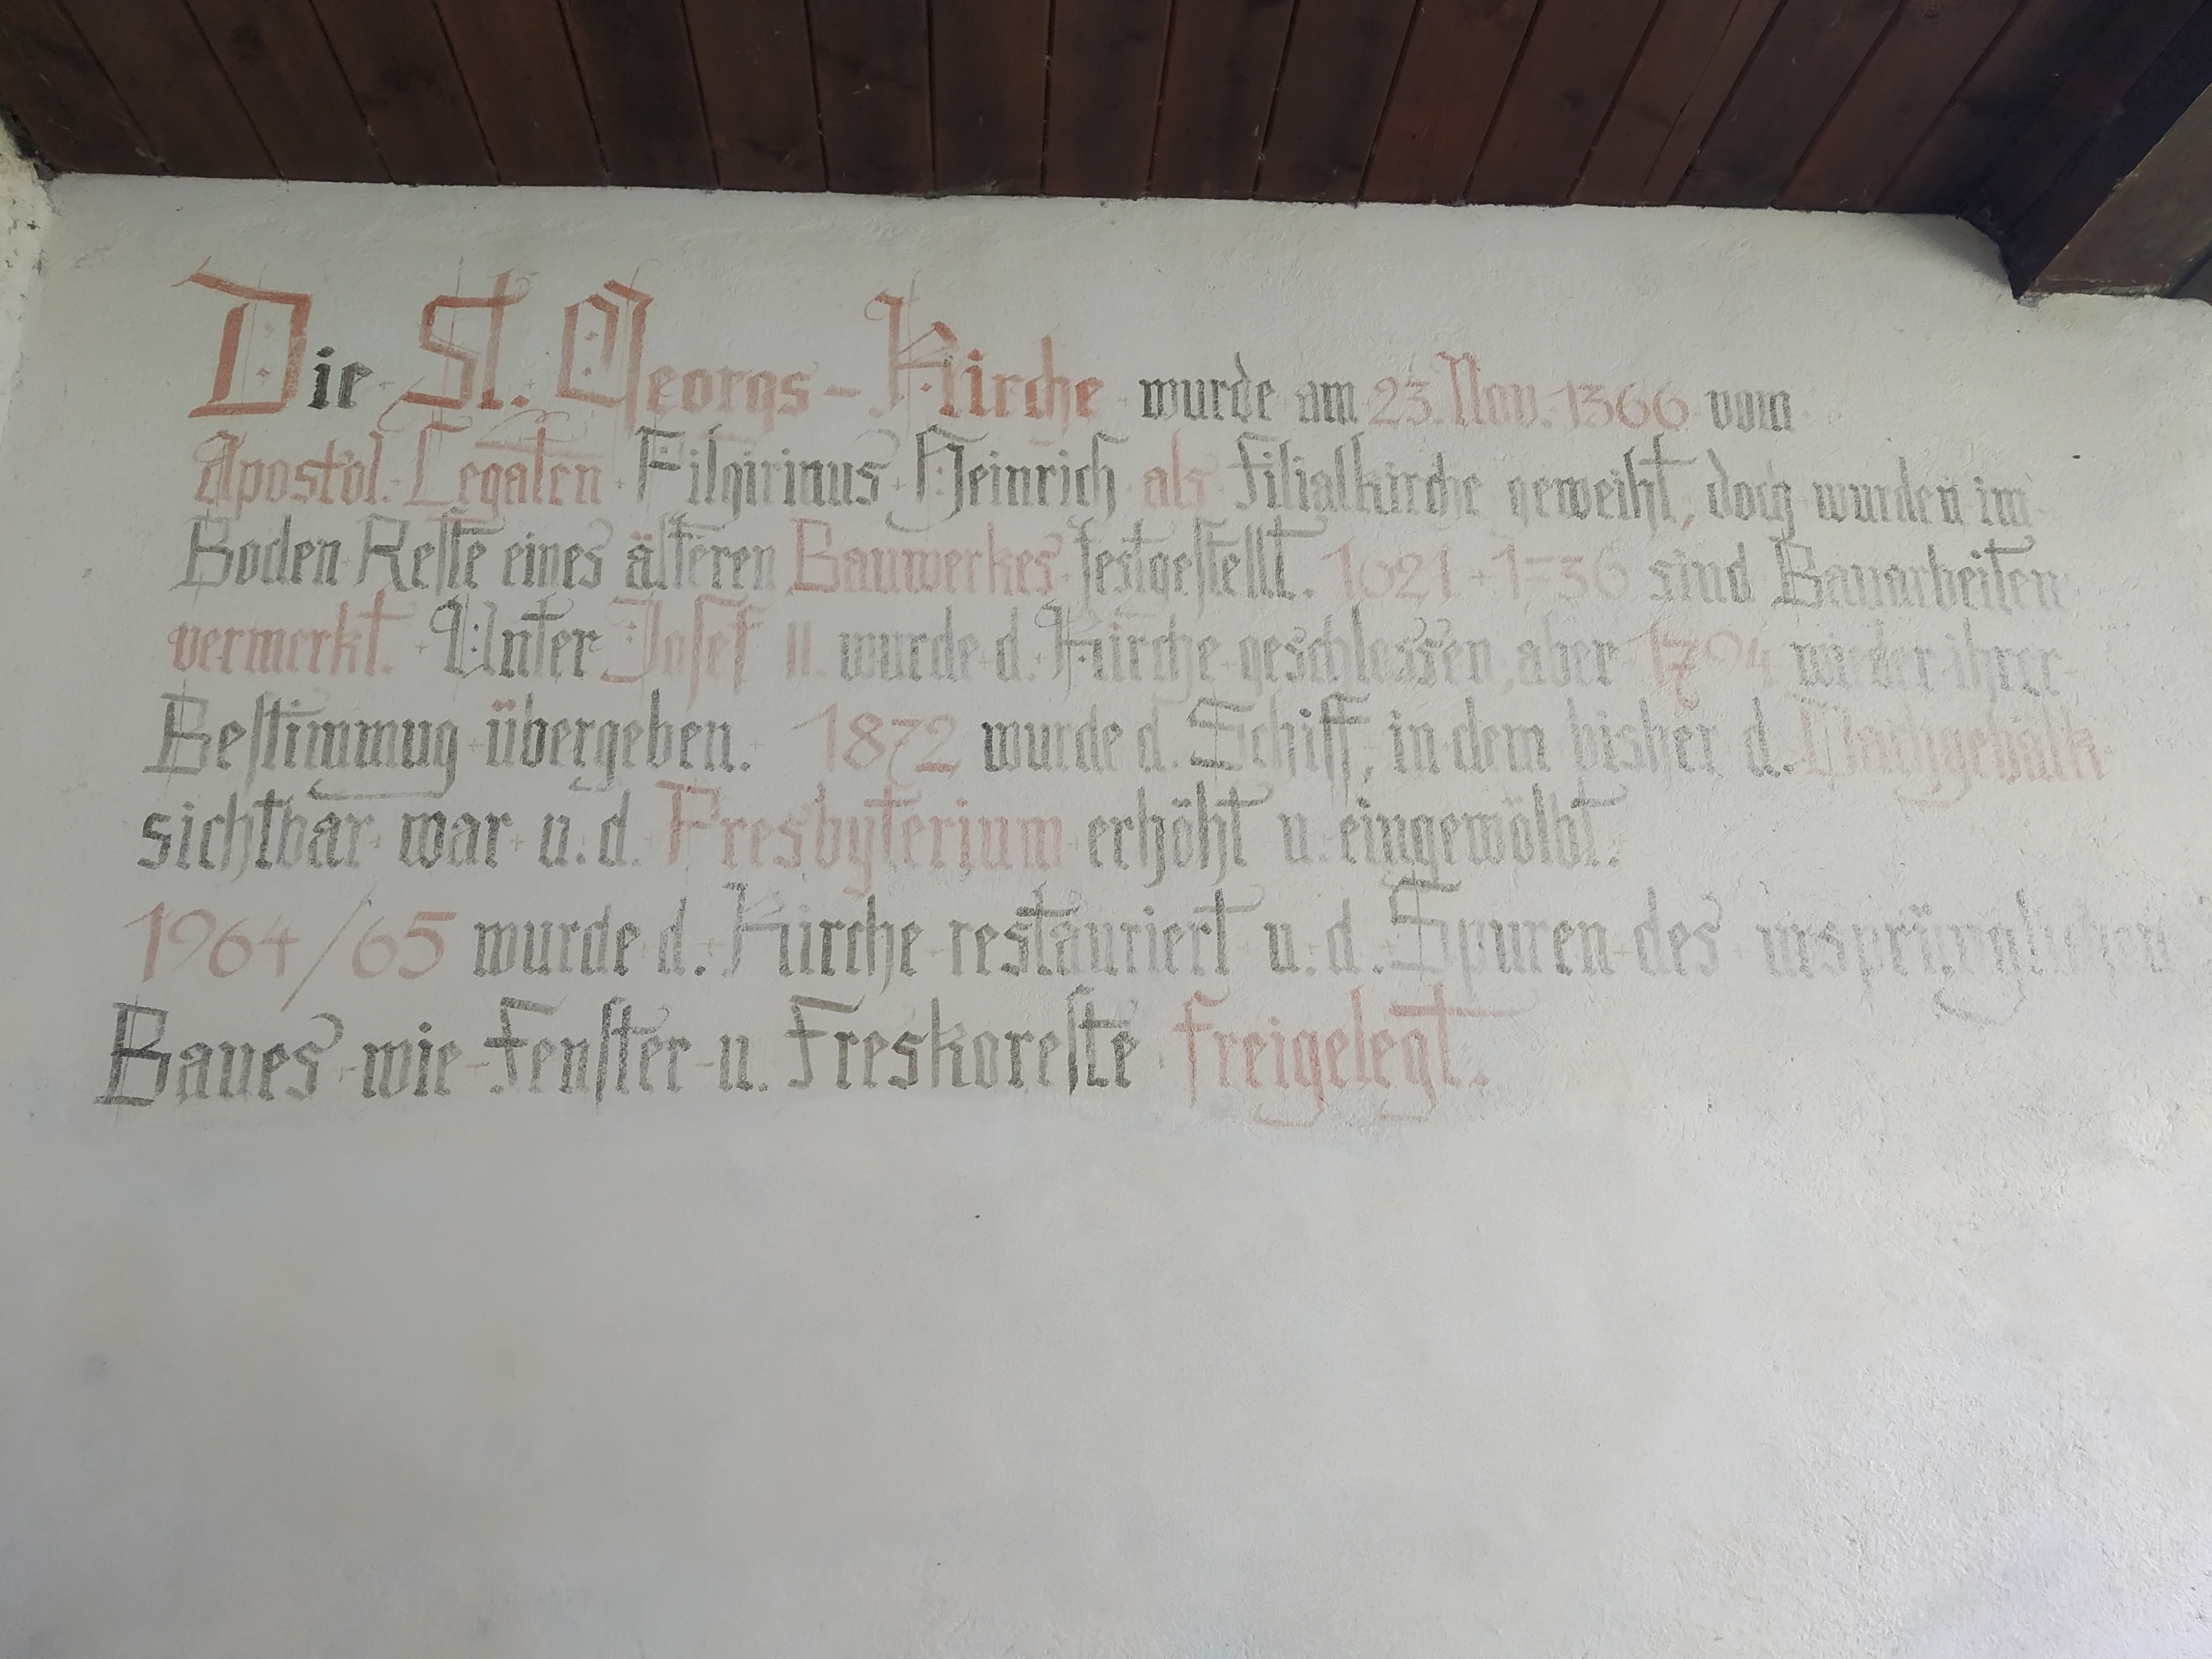 Die St. Georgs-Kirche wurde am 23. Nov. 1366 vom
Apostol. Legaten Filgirinus Heinrich als Filialkirche geweiht, doch wurden im
Boden Reste eines älteren Bauwerkes festgestellt. 1621 + 1736 sind Bauarbeiten
vermerkt. Unter Josef II. wurde d. Kirche geschlossen, aber 1794 wieder ihrer
Bestimmug übergeben. 1872 wurde d. Schiff, in dem bisher d. Dachgebälk
sichtbar war u. d. Presbyterium erhöht u. eingewölbt.
1964/65 wurde d. Kirche restauriert u. d. Spuren des ursprünglichen
Baues wie Fenster u. Freskoreste freigelegt.